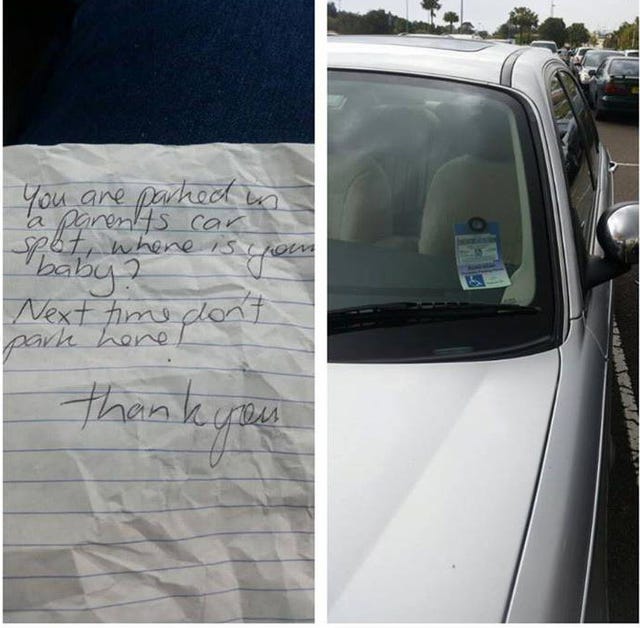 You are parked in
a parents car
spot, where is your
baby?
Next time don't
park here!
thank you